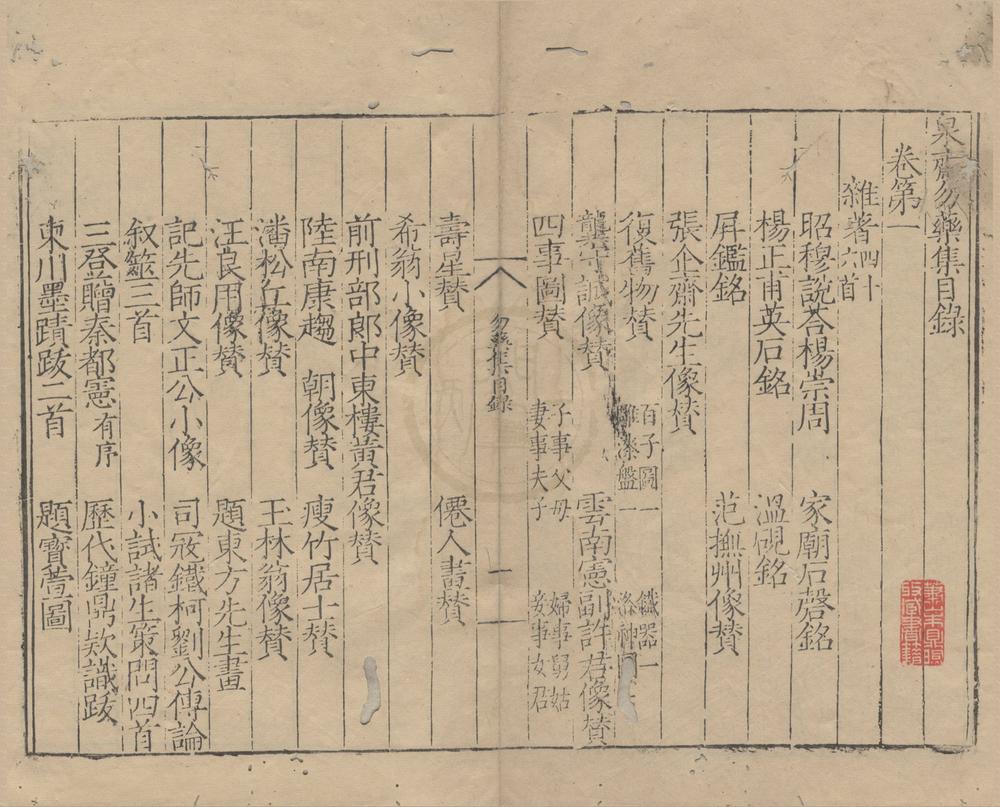 泉齋勿藥集目錄
卷第一
雜著四十六首
昭穆說荅楊崇周 家廟石磬銘
楊正甫英石銘 溫硯銘
屏鑑銘 范撫州像賛
張企齋先生像賛
復舊物賛 百子圖一 雕漆盤一 鐵器一 洛神圖
龔守 像賛 雲南憲副許君像賛
四事圖賛 子事父母 妻事夫子 婦事舅姑 妾事女君
勿藥集目錄 一
壽星賛 僊人畫賛
希翁小像賛
前刑部郎中東樓黃君像賛
陸南康趨 朝像賛 瘦竹居士賛
潘松丘像賛 玉林翁像賛
汪良用像賛 題東方先生畫
記先師文正公小像 司冦鐵柯劉公傳論
叙筮三首 小試諸生策問四首
三登贈秦都憲有序 歷代鐘鼎欵識跋
東川墨蹟跋二首 題寳萱圖